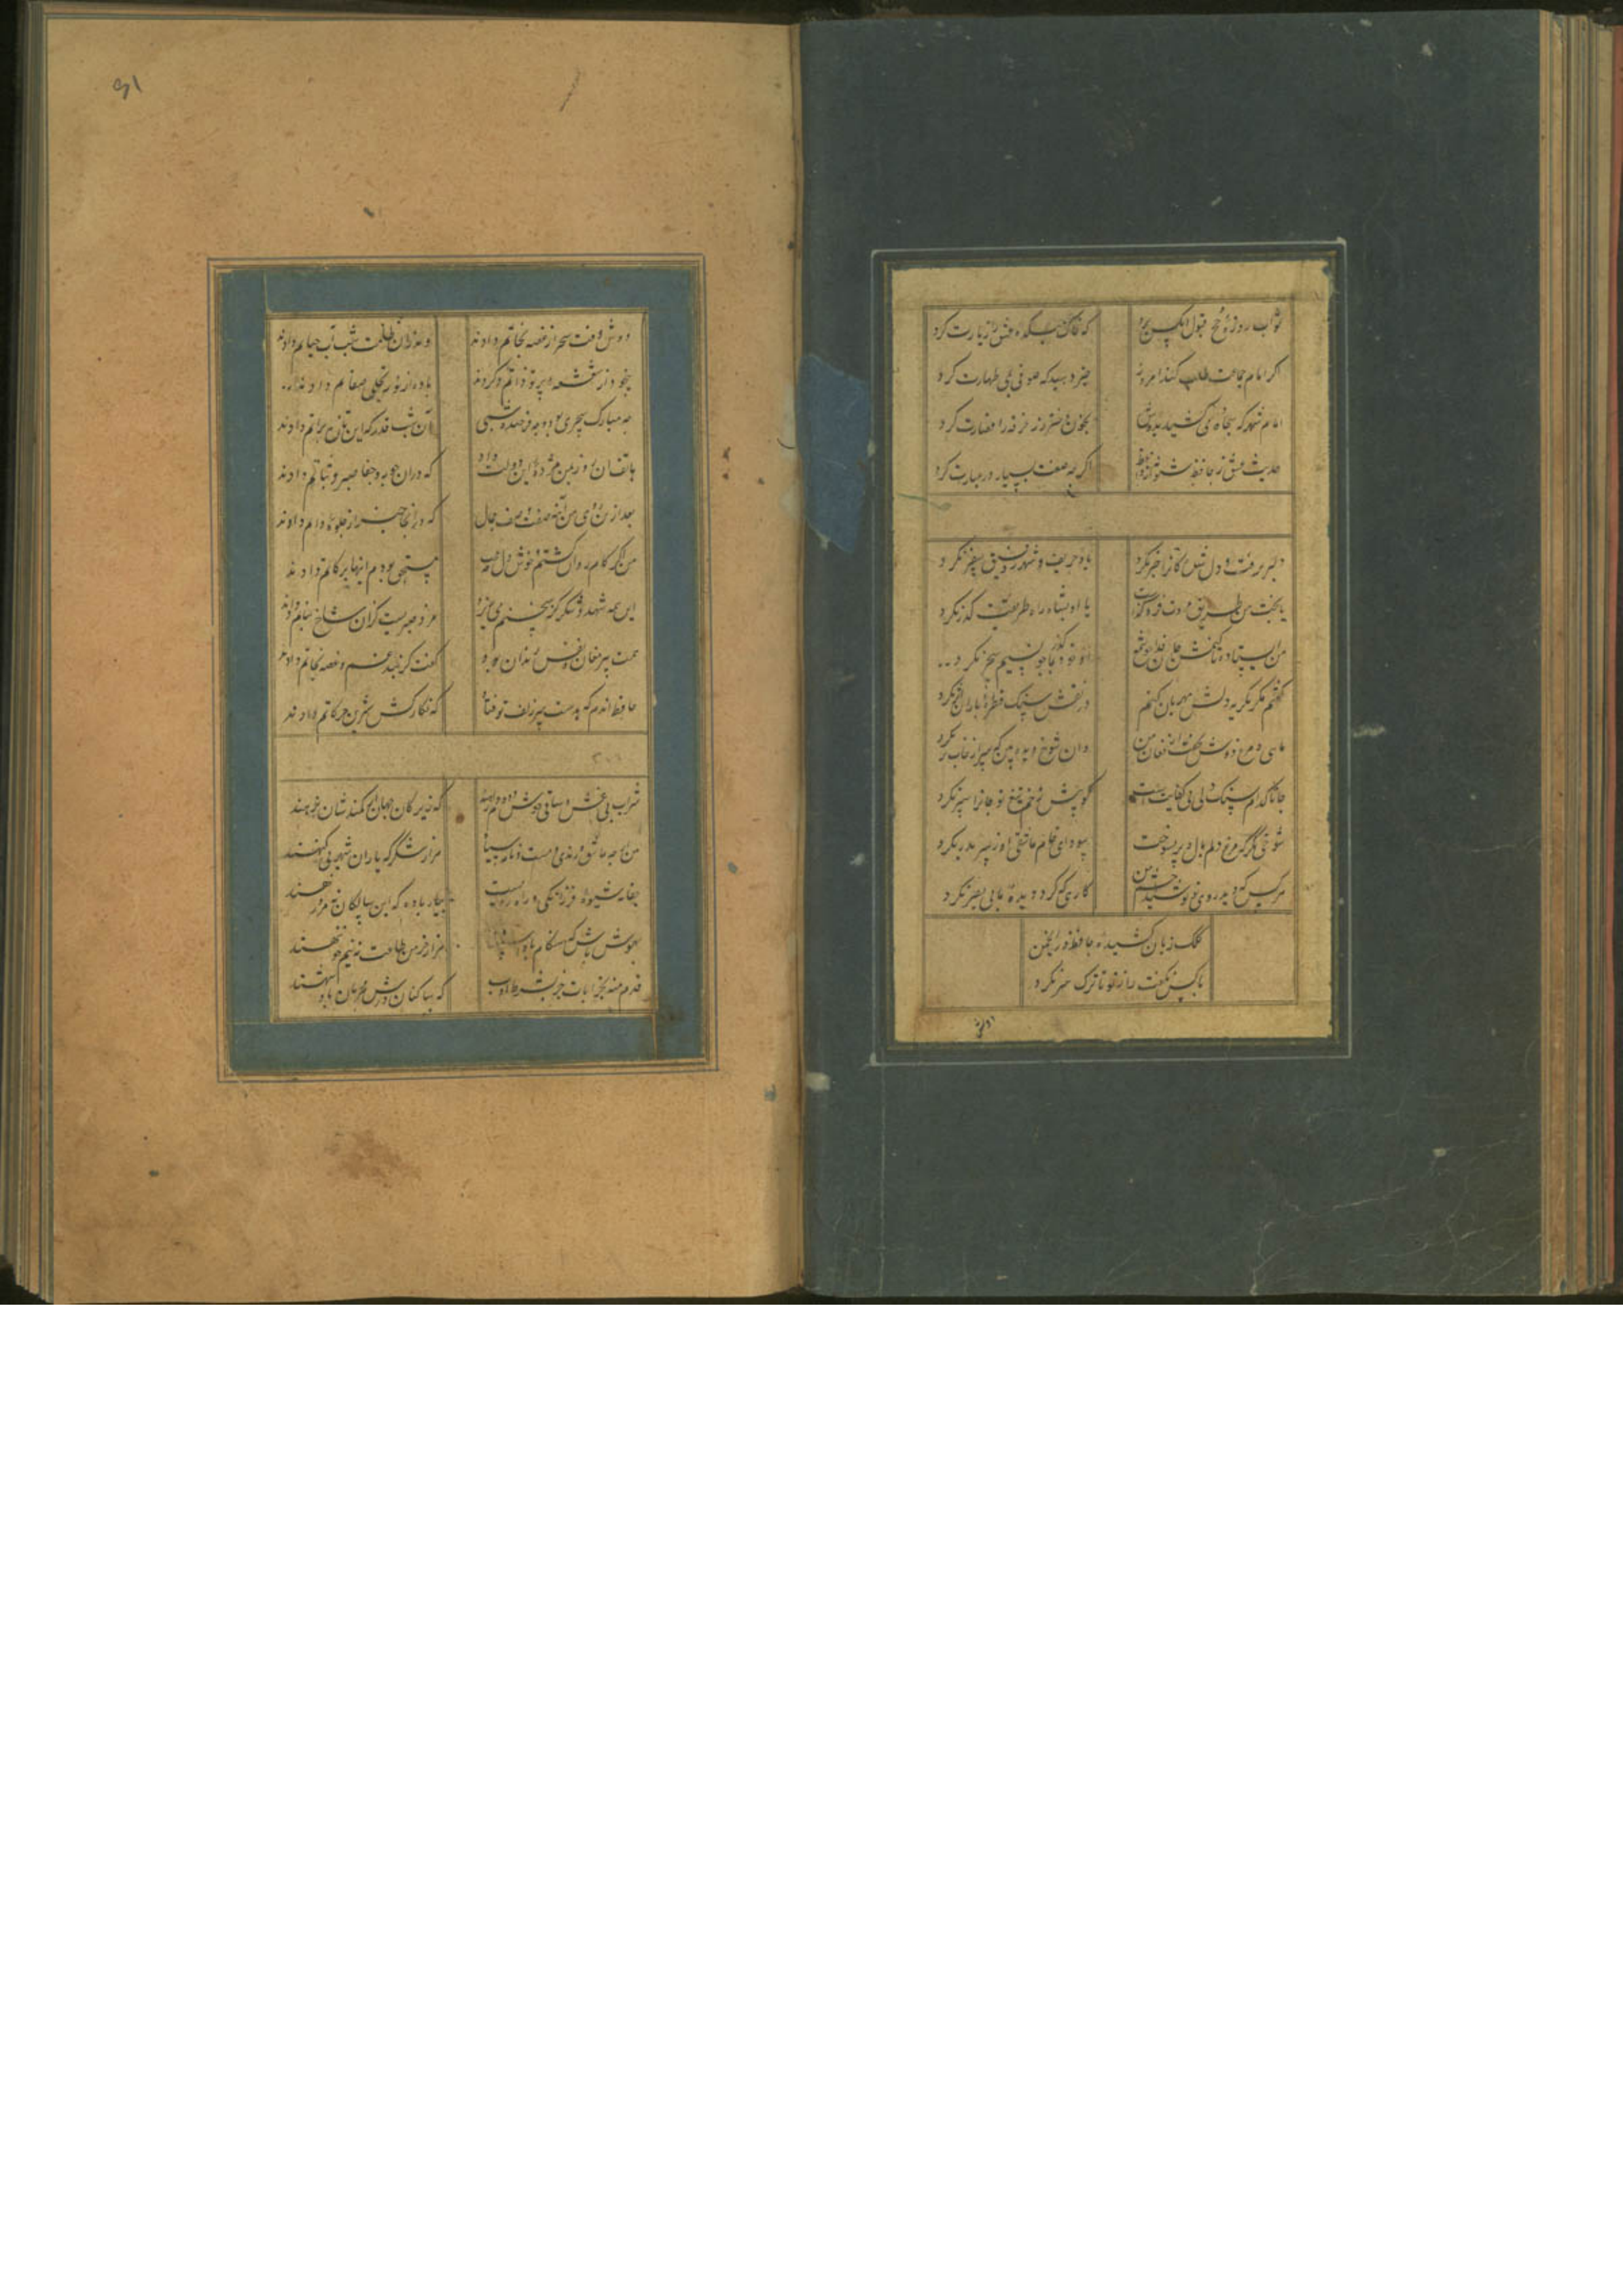 ثواب روزه و حج قبول آنکس برد که خاک میکده عشق را زیارت کرد
اگر امام جماعت طلب کند امروز خبر دهید که صوفی بمی طهارت کرد
امام شهر که سجاده می کشید بدوش بخون دختر رز خرقه را قصارت کرد
حدیث عشق ز حافظ شنو نه از واعظ اگر چه صنعت بسیار در عبارت کرد
دلبر برفت و دل شدگانرا خبر نکرد یاد حریف شهر و رفیق سفر نکرد
یا بخت من طریق مروت فروگذاشت یا او بشاه راه طریقت گذر نکرد
من ایستاده تا کنمش جان فدا چو شمع او خود گذر بما چو نسیم سحر نکرد
گفتم مگر بگریه دلش مهربان کنم در نقش سنگ قطره باران اثر نکرد
ماهی و مرغ دوش نخفت از فغان من وان شوخ دیده بین که سر از خواب بر نکرد
جانا کدام سنگ دلی بی کفایتست کو پیش زخم تیغ تو جانرا سپر نکرد
شوخی مکن که مرغ دلم بال و پر بسوخت سودای خام عاشقی از سر بدر نکرد
هر کس که دید روی تو بوسید چشم من کاری که کرد دیده ما بی بصر نکرد
کلک زبان کشیده حافظ در انجمن
با کس نگفت راز تو تا ترک سر نکرد
دوش
۹۱
دوش وقت سحر از غصه نجاتم دادند وندران ظلمت شب آب حیاتم دادند
بیخود از شعشعه پرتو ذاتم کردند باده از نور تجلی صفاتم دادند
چه مبارک سحری بود و چه فرخنده شبی آن شب قدر که این تازه براتم دادند
هاتف آن روز بمن مژده این دولت داد که دران جور و جفا صبر و ثباتم دادند
بعد ازین روی من و آینه وصف جمال که درانجا خبر از جلوه ذاتم دادند
من اگر کام روا گشتم و خوش دل چه عجب مستحق بودم اینها بزکاتم دادند
این همه شهد و شکر کز سخنم می ریزد اجر صبریست کزان شاخ نباتم دادند
همت پیر مغان و نفس رندان بود گفت کز بند غم و غصه نجاتم دادند
۲۰۱
شراب بی غش و ساقی خوش دو دام رهند که زیرکان جهان از کمندشان نرهند
من ار چه عاشقم و رند و مست و نامه سیاه هزار شکر که یاران شهر بی گنهند
جفا نه شیوه درویشی و راه رویست بیار باده که این سالکان نه مرد رهند
بهوش باش که هنگام باد استغنا هزار خرمن طاعت به نیم جو ننهند
قدم منه بخرابات جز بشرط ادب که ساکنان درش محرمان پادشهند